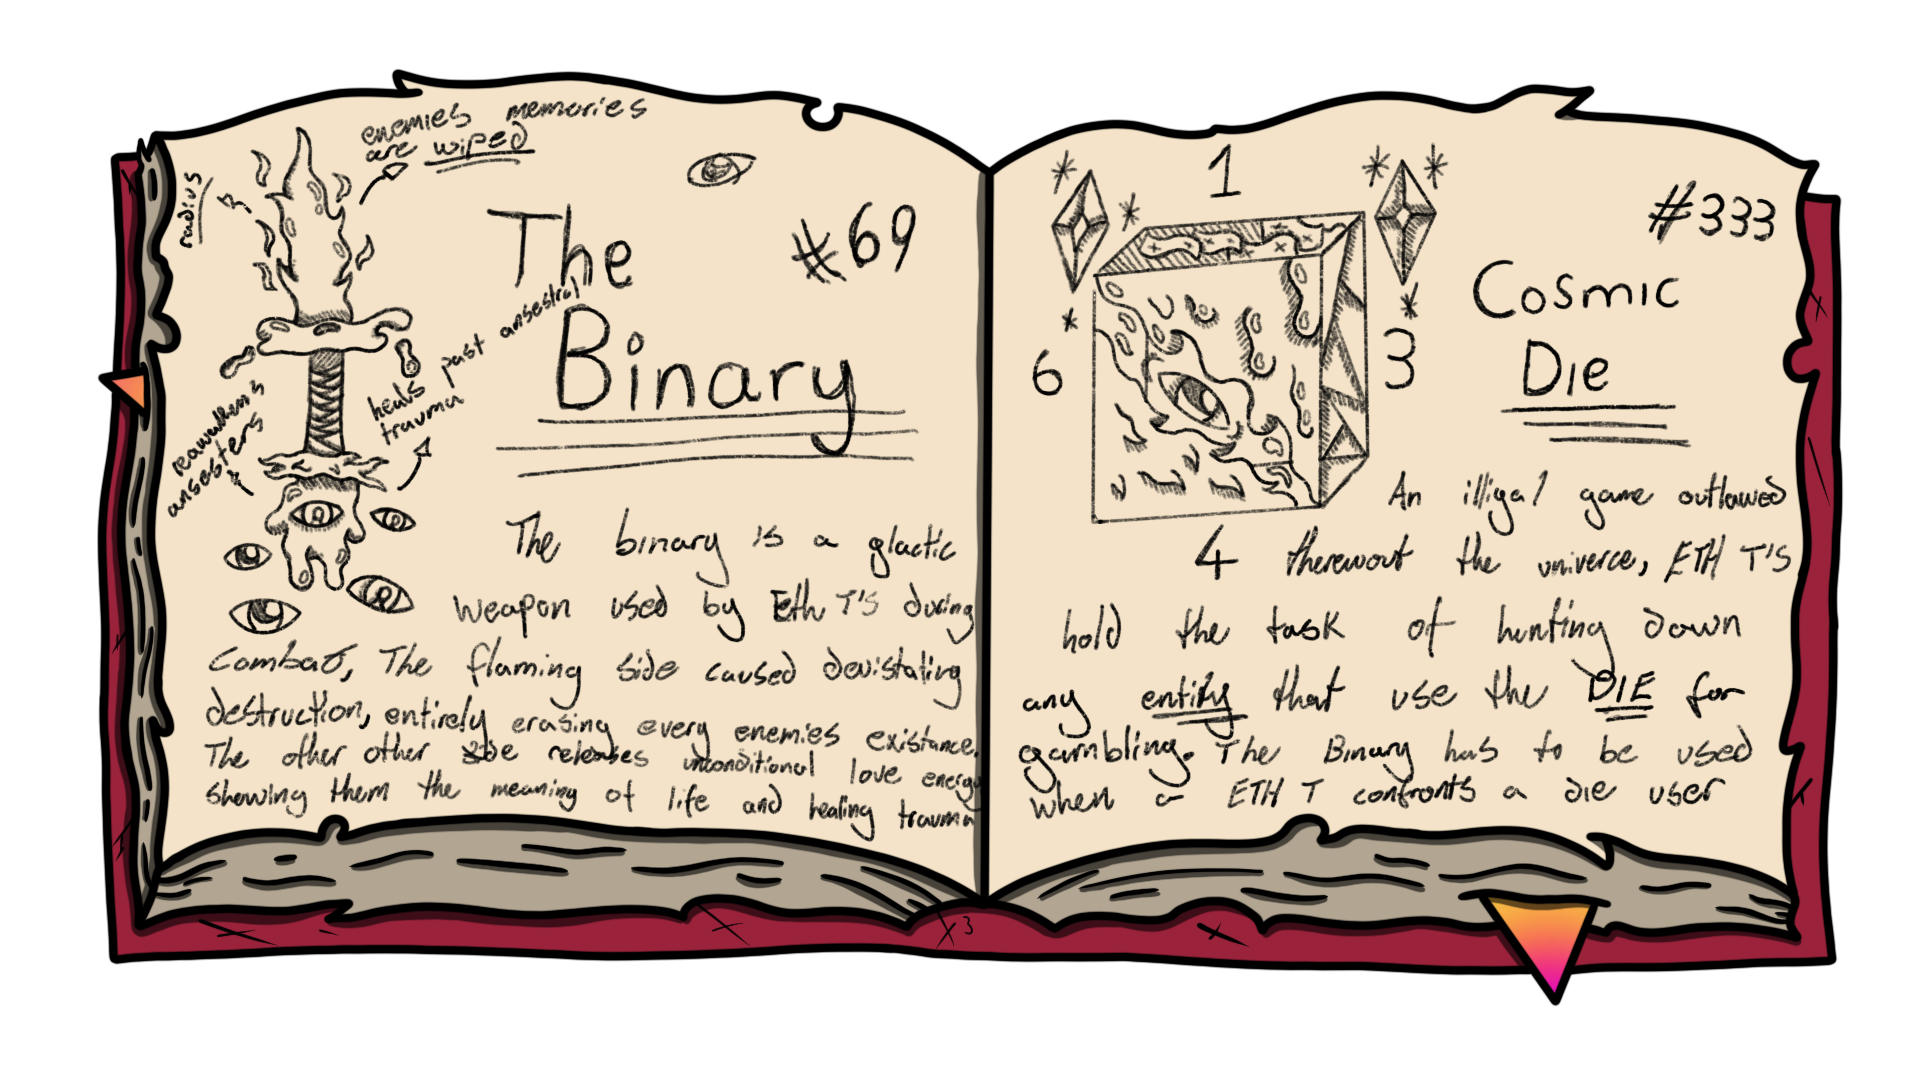 enemies memories
are wiped
radius
The
#69
Binary
heals past ansestral
trauma
reawakens
ansesters
The binary is a glactic
weapon used by Eth T'S during
Combat, The flaming side caused devistating
destruction, entirely erasing every enemies existance.
The other other side releases unconditional love energy
showing them the meaning of life and healing trauma
1
#333
Cosmic
Die
6
3
4
An illigal game outlawed
therewout the univerce, ETH T'S
hold the task of hunting down
any entity that use the DIE for
gambling. The Binary has to be used
when a ETH T confronts a die user
3